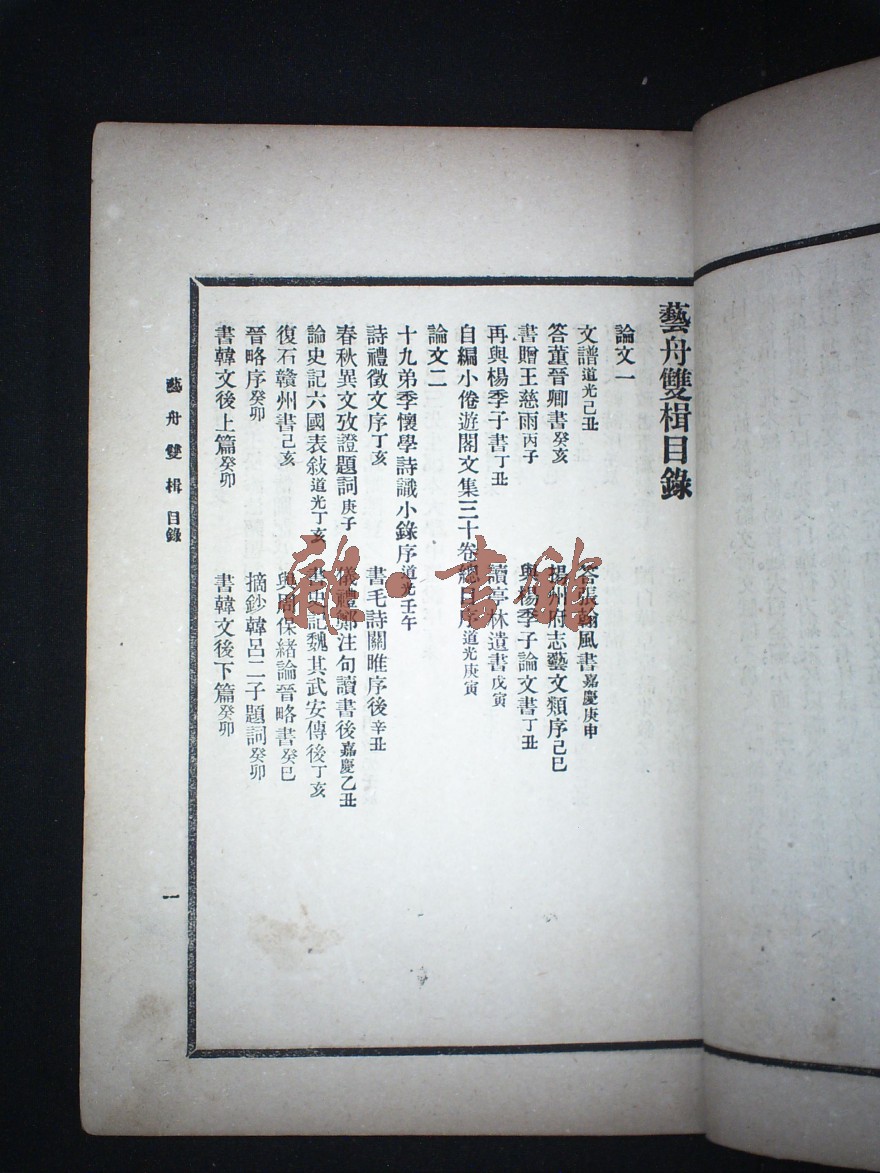 藝舟雙楫目錄
論文一
文譜道光己丑 答張翰風書嘉慶庚申
答董晉卿書癸亥 揚州府志藝文類序己巳
書贈王慈雨丙子 與楊季子論文書丁丑
再與楊季子書丁丑 讀亭林遺書戊寅
自編小倦遊閣文集三十卷總目序道光庚寅
論文二
十九弟季懷學詩識小錄序道光壬午
詩禮徵文序丁亥 書毛詩關雎序後辛丑
春秋異文攷證題詞庚子 儀禮鄭注句讀書後嘉慶乙丑
論史記六國表敍道光丁亥 書史記魏其武安傳後丁亥
復石贛州書己亥 與周保緒論晉略書癸巳
晉略序癸卯 摘鈔韓呂二子題詞癸卯
書韓文後上篇癸卯 書韓文後下篇癸卯
藝舟雙楫 目錄 一
雜·書館